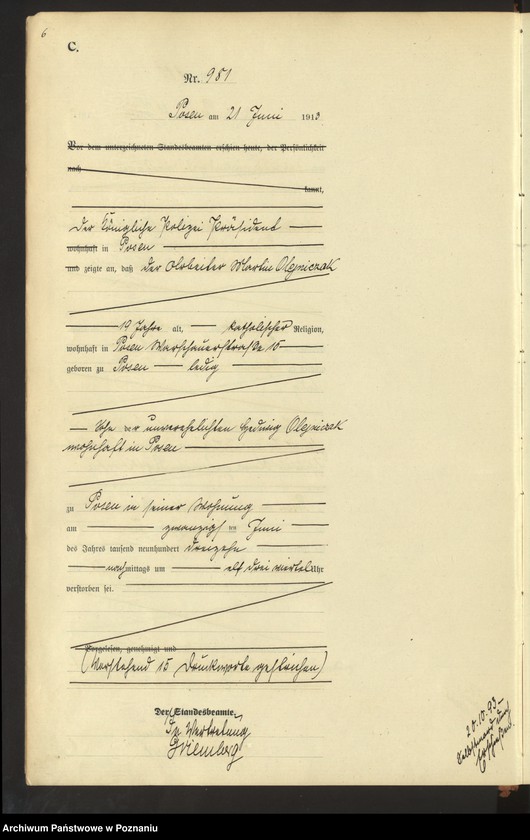 6
C.
Nr. 981
Posen am 21 Juni 1913
Vor dem unterzeichneten Standesbeamten erschien heute, der Persönlichkeit
nach
kannt,
der Königliche Polizei Präsident
wohnhaft in Posen
und zeigte an, daß der Arbeiter Martin Olejniczak
19 Jahre alt, katholischer Religion,
wohnhaft in Posen Warschauerstraße 15
geboren zu Posen ledig
Sohn der unverehelichten Hedwig Olejniczak
wohnhaft in Posen
zu Posen in seiner Wohnung
am zwanzigsten Juni
des Jahres tausend neunhundert dreizehn
nachmittags um elf drei viertel Uhr
verstorben sei.
Vorgelesen, genehmigt und
(Vorstehend 15 Druckworte gestrichen)
Der Standesbeamte.
In Vertretung
20.10.93
Selbstmord durch
Archiwum Państwowe w Poznaniu